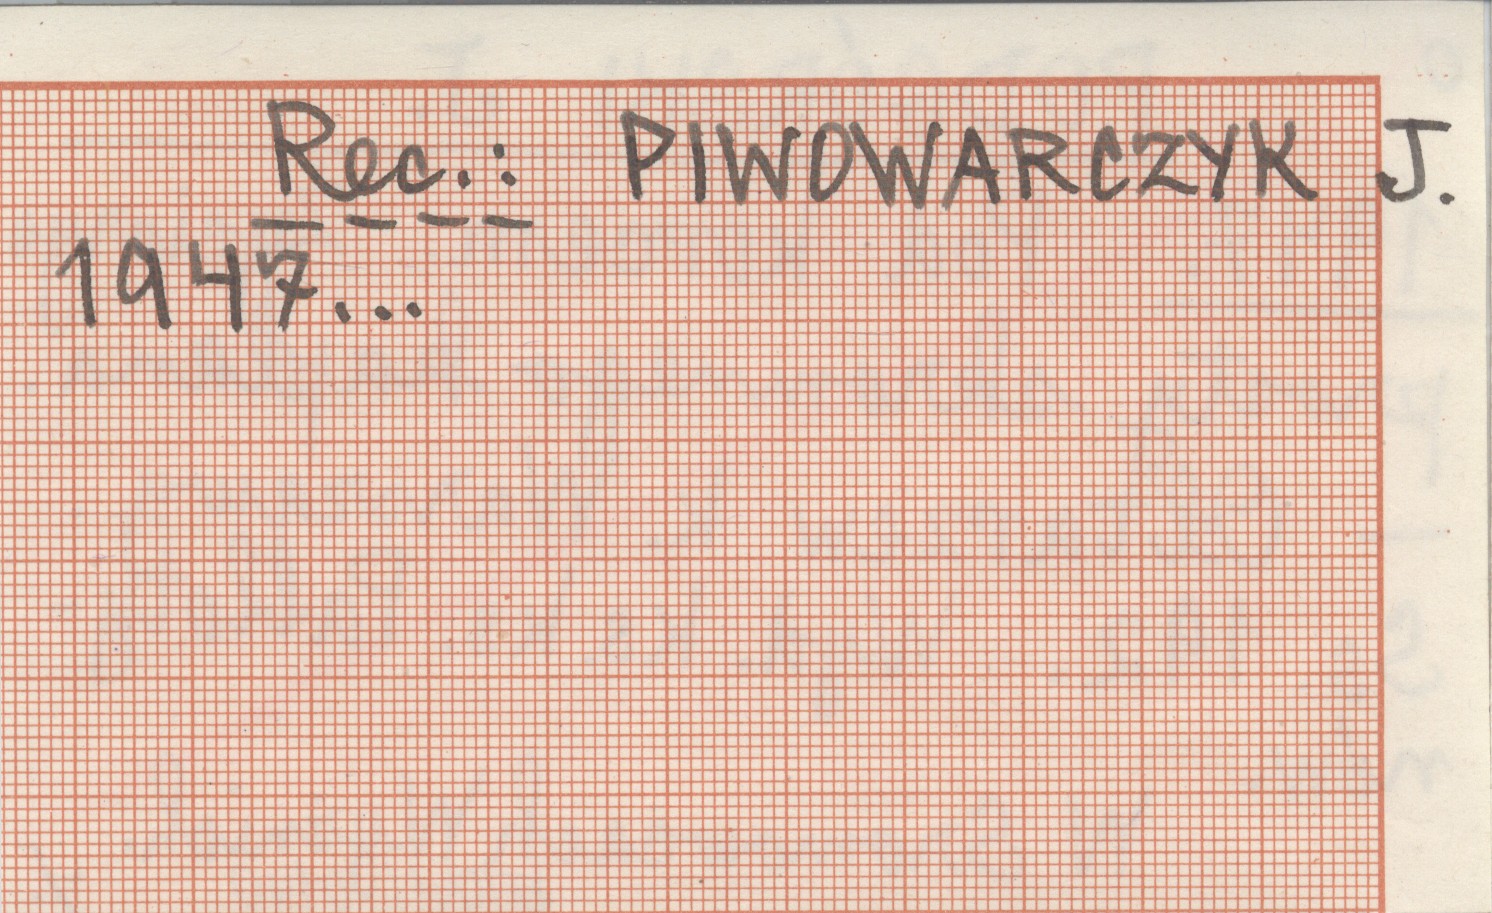 Rec.: PIWOWARCZYK J.
1947...